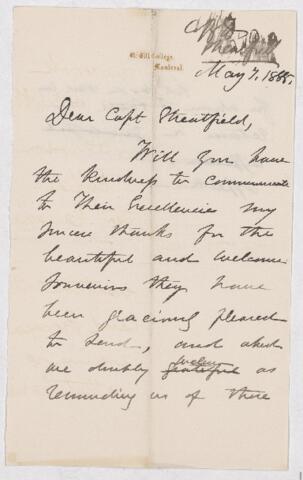 McGill College,
Montreal.
Capt
Streatfield
May 7, 1888.
Dear Capt Streatfield,
Will you have
the kindness to communicate
to Their Excellencies my
sincere thanks for the
beautiful and welcome
souvenirs they have
been graciously pleased
to send, and which
are doubly grateful as
reminding us of these